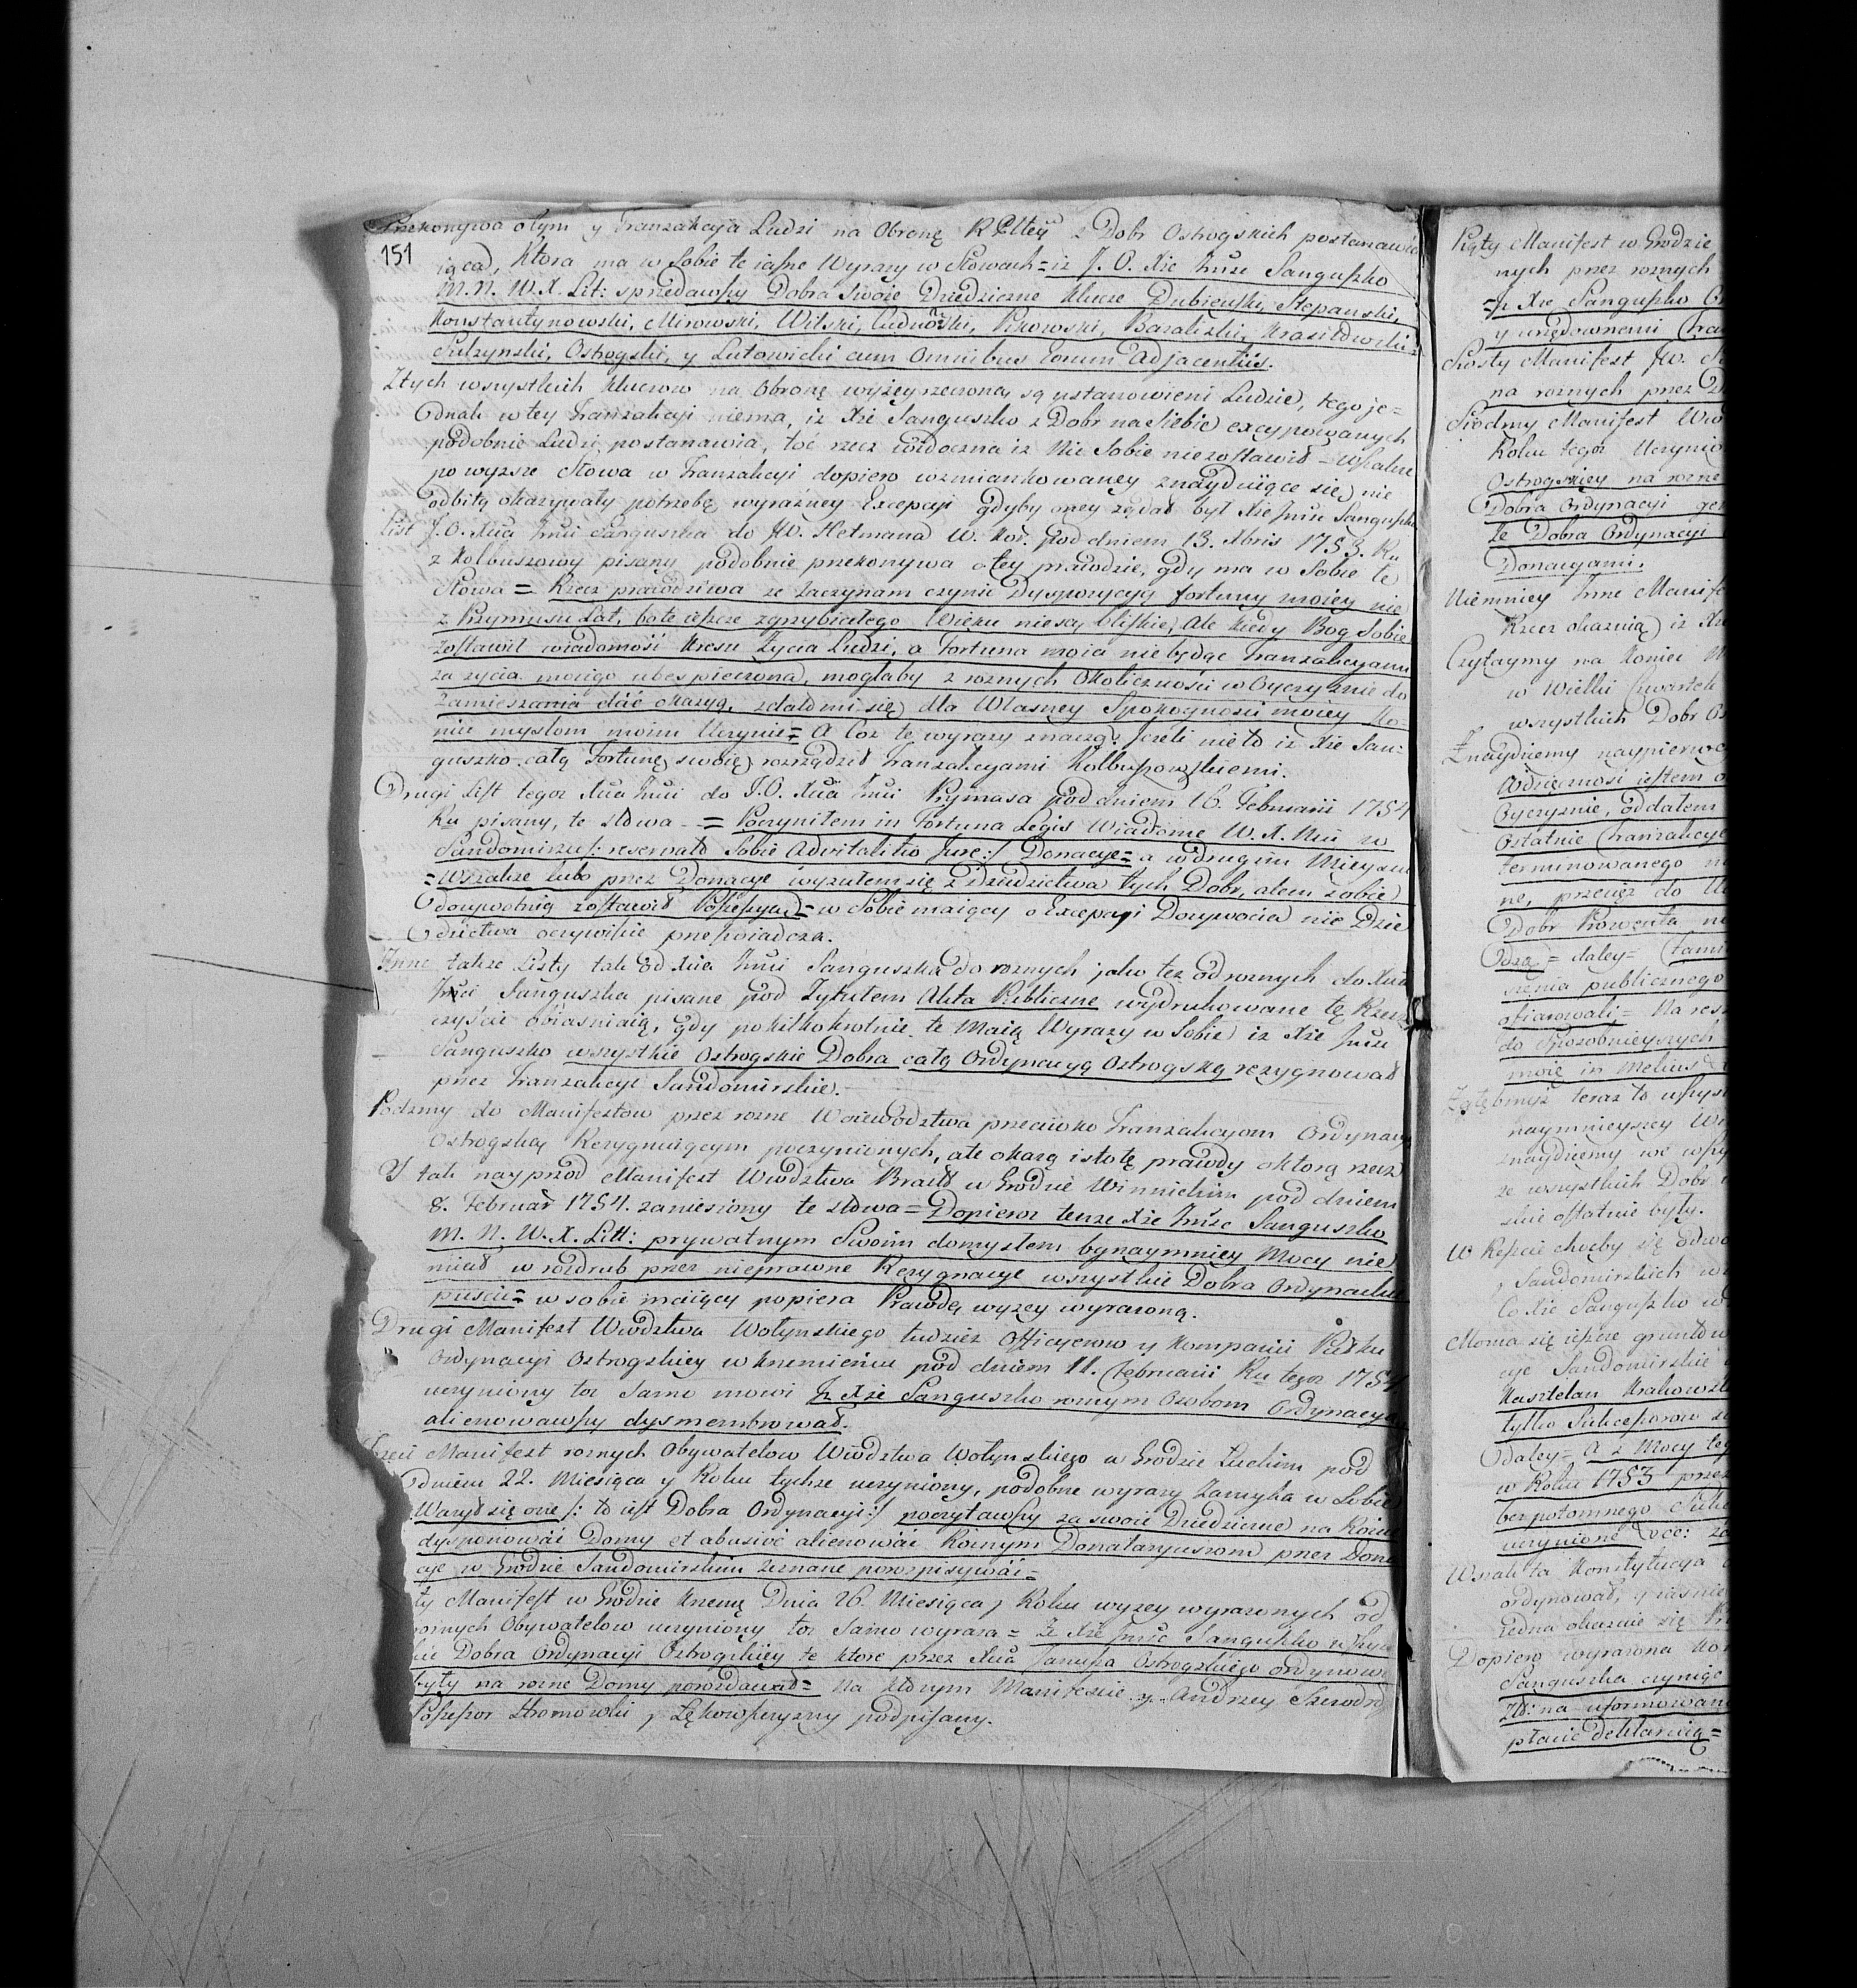 Przekonywa otym y Tranzakcyja Ludzi na Obronę RPltey z Dobr Ostrogskich postanawia
151
iąca, Ktora ma w Sobie te iasne Wyrazy w Słowach = iz J. O. Xże Imsc Sanguszko
M. N. W. X. Lit: sprzedawszy Dobra Swoie Dziedziczne Klucze Dubienski, Stepanski,
Konstantynowski, Mirowski, Wilski, Cudnowski, Pikowski, Bazaliski, Krasiłowski
Sulzynski, Ostrogski, y Lutowicki cum Omnibus Eorum Adjacentiis.
Ztych wszystkich Kluczow na Obronę wyżey rzeczoną są ustanowieni Ludzie, tego je=
dnak w tey Tranzakcyi niema, iz Xże Sanguszko z Dobr na Siebie excypowanych
podobnie Ludzi postanawia, toć rzecz widoczna iz Nic Sobie niezostawił = wszakze
powyzsze Słowa w Tranzakcyi dopiero wzmiankowaney znayduiące się nie
odbitą okazywały potrzebę wyraźney Excepcyi gdyby oney żądał był Xże Imsc Sanguszko
List J. O. Xcia Imci Sanguszka do JW. Hetmana W. Kor. pod dniem 13. Xbris 1753. Ru
z Kolbuszowy pisany podobnie przekonywa o tey prawdzie, gdy ma w Sobie te
Słowa = Rzecz prawdziwa ze zaczynam czynic Dyspozycyą fortuny moiey nie
z Przymusu Lat, bo te ieszcze zgrzybiałego Wieku niesą bliskie, Ale kiedy Bog Sobie
zostawił wiadomość Kresu Życia Ludzi, a Fortuna moia niebędąc Tranzakcyami
za zycia moiego ubespieczona, mogłaby z roznych Okoliczności w Oyczyznie do
Zamieszania dać okazyą, zdało mi się dla Własney Spokoyności moiey Ko=
niec myslom moim Uczynic = A Coz te wyrazy znaczą? Jezeli nie to iz Xże San=
guszko całą Fortunę swoię rozrządził Tranzakcyami Kolbuszowskiemi.
Drugi List tegoz Xcia Imci do J. O. Xcia Imci Prymasa pod dniem 16. Februarii 1754
Ru pisany, te słowa = Poczyniłem in Fortuna Legis Wiadome W. X. Mci w
Sandomirzu /: reservato Sobie Advitalitio Jure :/ Donacye = a w drugim Mieyscu
= Wszakze lubo przez Donacye wyzułem się z Dziedzictwa tych Dobr, alem Sobie
dozywotnią zostawił Possessyą = w Sobie maiący o Excepcyi Dozywocia nie Dzie
dzictwa oczywiscie przeswiadcza.
Inne takze Listy tak od Xcia Imci Sanguszka do roznych jako tez od roznych do Xcia
Imci Sanguszka pisane pod Tytułem Akta Publiczne wydrukowane tę Rzecz
czyscie obiasniaią, gdy pokilkokrotnie te Maią Wyrazy w Sobie iz Xże Imsc
Sanguszko wszystkie Ostrogskie Dobra całą Ordynacyą Ostrogską rezygnował
przez Tranzakcye Sandomirskie.
Podzmy do Manifestow przez rozne Woiewodztwa przeciwko Tranzakcyom Ordynacyą
Ostrogską Rezygnuiącym poczynionych, ale okażą istotę prawdy o ktorą rzecz
Y tak nayprzod Manifest Wwdztwa Bracł w Grodzie Winnickim pod dniem
8. Februar 1754. zaniesiony te słowa = Dopieroz tenze Xże Imsc Sanguszko
M. N. W. X. Litt: prywatnym Swoim domysłem bynaymniey Mocy nie
miał w rozdrub przez nieprawne Rezygnacye wszystkie Dobra Ordynackie
puscic = w sobie maiący popiera Prawdę wyzey wyrazoną.
Drugi Manifest Wwdztwa Wołynskiego tudziez Officyerow y Kompanii Pułku
Ordynacyi Ostrogskiey w Krzemiencu pod dniem 11. Februarii Ru tegoz 1754
uczyniony toz Samo mowi Iz Xże Sanguszko roznym Osobom Ordynacyą
alienowawszy dysmembrował.
Trzeci Manifest roznych Obywatelow Wwdztwa Wołynskiego w Grodzie Łuckim pod
dniem 22. Miesiąca y Roku tychze uczyniony, podobne wyrazy Zamyka w Sobie
Wazył się one /: to iest Dobra Ordynacyi :/ poczytawszy za swoie Dziedziczne na Rozne
dysponować Domy et abusivè alienować Roznym Donataryuszom przez Dona
cye w Grodzie Sandomirskim zeznane porozpisywać =
ty Manifest w Grodzie Krzemę Dnia 26. Miesiąca y Roku wyzey wyrazonych od
roznych Obywatelow uczyniony toz Samo wyraza = Ze Xże Imsc Sanguszko wszys
kie Dobra Ordynacyi Ostrogskiey te ktore przez Xcia Janusza Ostrogskiego ordynowa
były na rozne Domy porozdawał = Na ktorym Manifescie y Andrzey
Possessor Hromowki y podpisany.
Piąty Manifest w Grodzie
nych przez roznych
= Iz Xże Sanguszko
y urzędownemi
Szosty Manifest JW.
na roznych przez
Siodmy Manifest Wwd
Roku tegoz Uczynio
Ostrogskiey na rozne
Dobra Ordynacyi
Ze Dobra Ordynacyi
Donacyami.
Niemniey Inne Manife
Rzecz okaznią iz Xże
Czytaymy na Koniec
w Wielki Czwartek
wszystkich Dobr
Znaydziemy naypierwe
Wdzięczności iestem
Oyczyznie, oddałem
Ostatnie Tranzakcye
terminowanego
ne, przeciez do
Dobr Prowenta
= daley =
publicznego
ofiarowali = Na
do Sposobnieyszych
moię in Melius
teraz to wszys
naymnieyszey
znaydziemy we
ze wszystkich Dobr
skie ostatnie były.
W Reszcie choćby się odwo
Sandomirskich
Co Xże Sanguszko
Mozna się ieszcze
cye Sandomirskie
Kasztelan Krakowski
tylko Sukcessorow
daley = A z Mocy tey
w Roku 1753 przez
bezpotomnego
uczynione
Wszak ta Konstytucya
ordynował, y iasnie
Jedna okazuie się
Dopiero wyrazona
Sanguszka czyniąc
na uformowanie
płacić deklaruią =